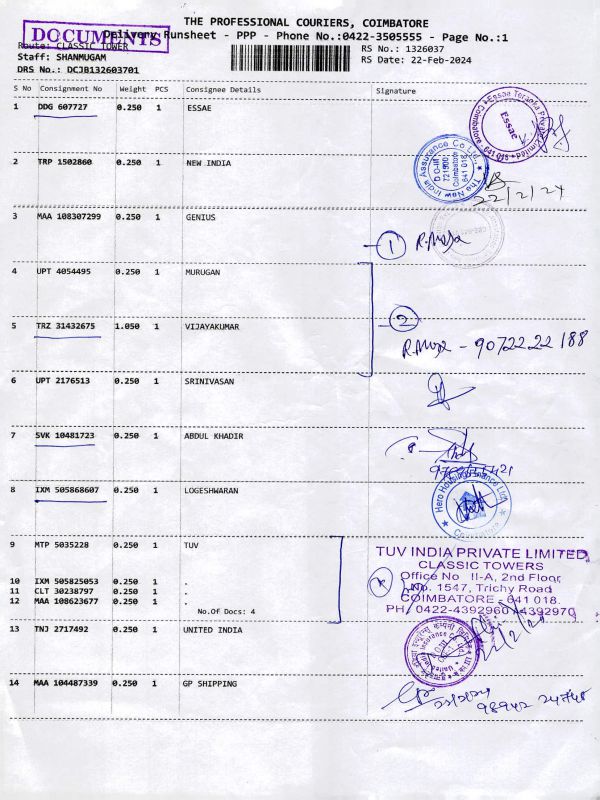 THE PROFESSIONAL COURIERS, COIMBATORE
DOCUMENTS
Delivery Runsheet - PPP - Phone No.:0422-3505555 - Page No.:1
Route: CLASSIC TOWER RS No.: 1326037
Staff: SHANMUGAM RS Date: 22-Feb-2024
DRS No.: DCJB132603701
S No Consignment No Weight PCS Consignee Details Signature
1 DDG 607727 0.250 1 ESSAE
Essae Teraoka Private Limited
Essae
Coimbatore 641 018
2 TRP 1502860 0.250 1 NEW INDIA
The New India Assurance Co. Ltd.
D.O-III
721500
Coimbatore
641 018
22/2/24
3 MAA 108307299 0.250 1 GENIUS
1 R.Moja
4 UPT 4054495 0.250 1 MURUGAN
2
5 TRZ 31432675 1.050 1 VIJAYAKUMAR
R.Moja - 9072222188
6 UPT 2176513 0.250 1 SRINIVASAN
7 SVK 10481723 0.250 1 ABDUL KHADIR
8 IXM 505868607 0.250 1 LOGESHWARAN
Hero Housing Finance Ltd.
Coimbatore
9 MTP 5035228 0.250 1 TUV
10 IXM 505825053 0.250 1 .
11 CLT 30238797 0.250 1 .
12 MAA 108623677 0.250 1 .
No.Of Docs: 4
TUV INDIA PRIVATE LIMITED
CLASSIC TOWERS
Office No II-A, 2nd Floor
No. 1547, Trichy Road
COIMBATORE - 641 018.
PH: 0422-4392960, 4392970
13 TNJ 2717492 0.250 1 UNITED INDIA
14 MAA 104487339 0.250 1 GP SHIPPING
98942 24748